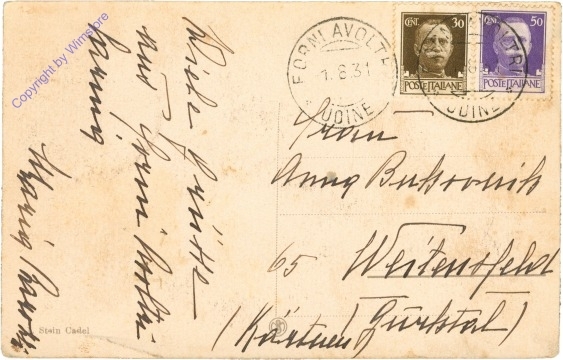 Viele Grüße
aus Forni Avoltri
Copyright by Wimstore
Stein Cadel
FORNI AVOLTRI
1.8.31
UDINE
CENT. 30
POSTE ITALIANE
CENT. 50
POSTE ITALIANE
Frau
Anna
65 Weitensfeld
(Kärnten) Gurktal)